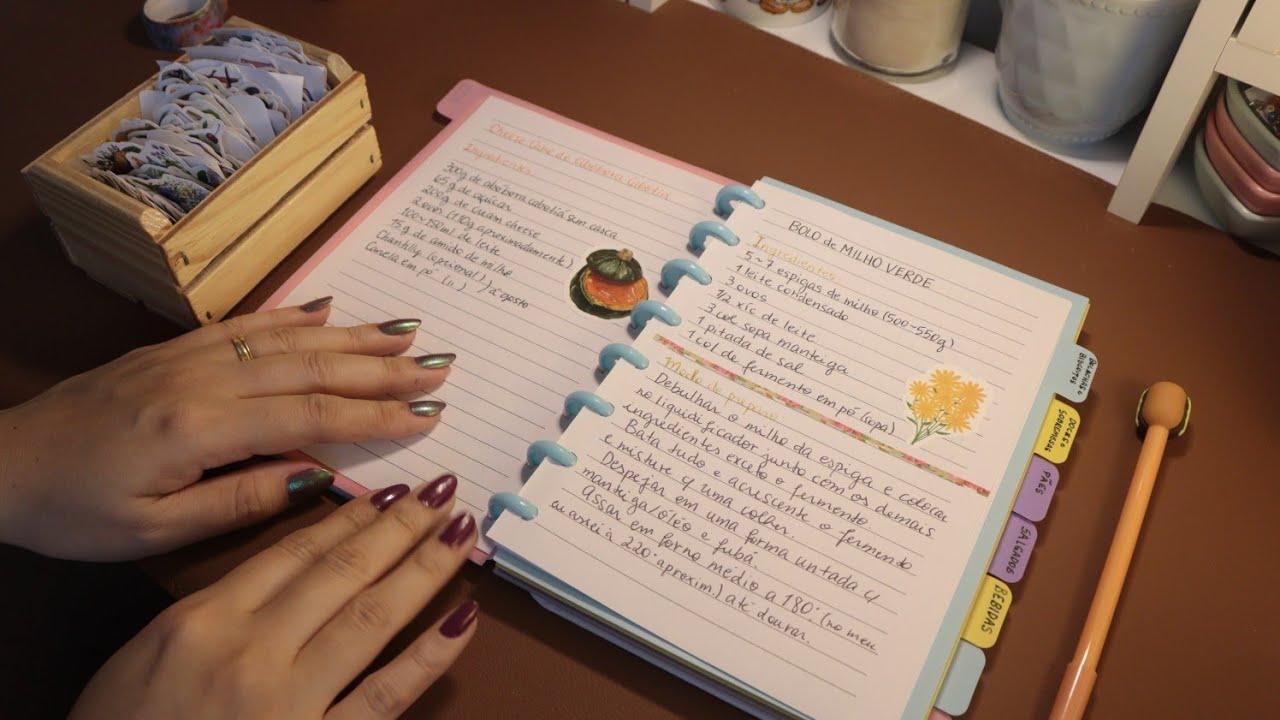 Cheese Cake de Abóbora Cabotia
Ingredientes
300g de abóbora cabotia sem casca
65 g de açúcar
200g de cream cheese
2 ovos (110g aproximadamente)
100~150ml de leite
15g de amido de milho
Chantilly (opcional) } a gosto
Canela em pó (11)
BOLO de MILHO VERDE
Ingredientes
5~7 espigas de milho (500~550g)
1 leite condensado
3 ovos
1/2 xíc de leite
3 col sopa manteiga
1 pitada de sal
1 col de fermento em pó (sopa)
Modo de preparo
Debulhar o milho da espiga e colocar
no liquidificador junto com os demais
ingredientes exceto o fermento.
Bata tudo e acrescente o fermento
e misture c/ uma colher.
Despejar em uma forma untada c/
manteiga/óleo e fubá.
Assar em forno médio a 180° (no meu
eu assei à 220° aproxim.) até dourar.
BISCOITOS
DOCES e
SOBREMESAS
PÃES
SALGADOS
BEBIDAS